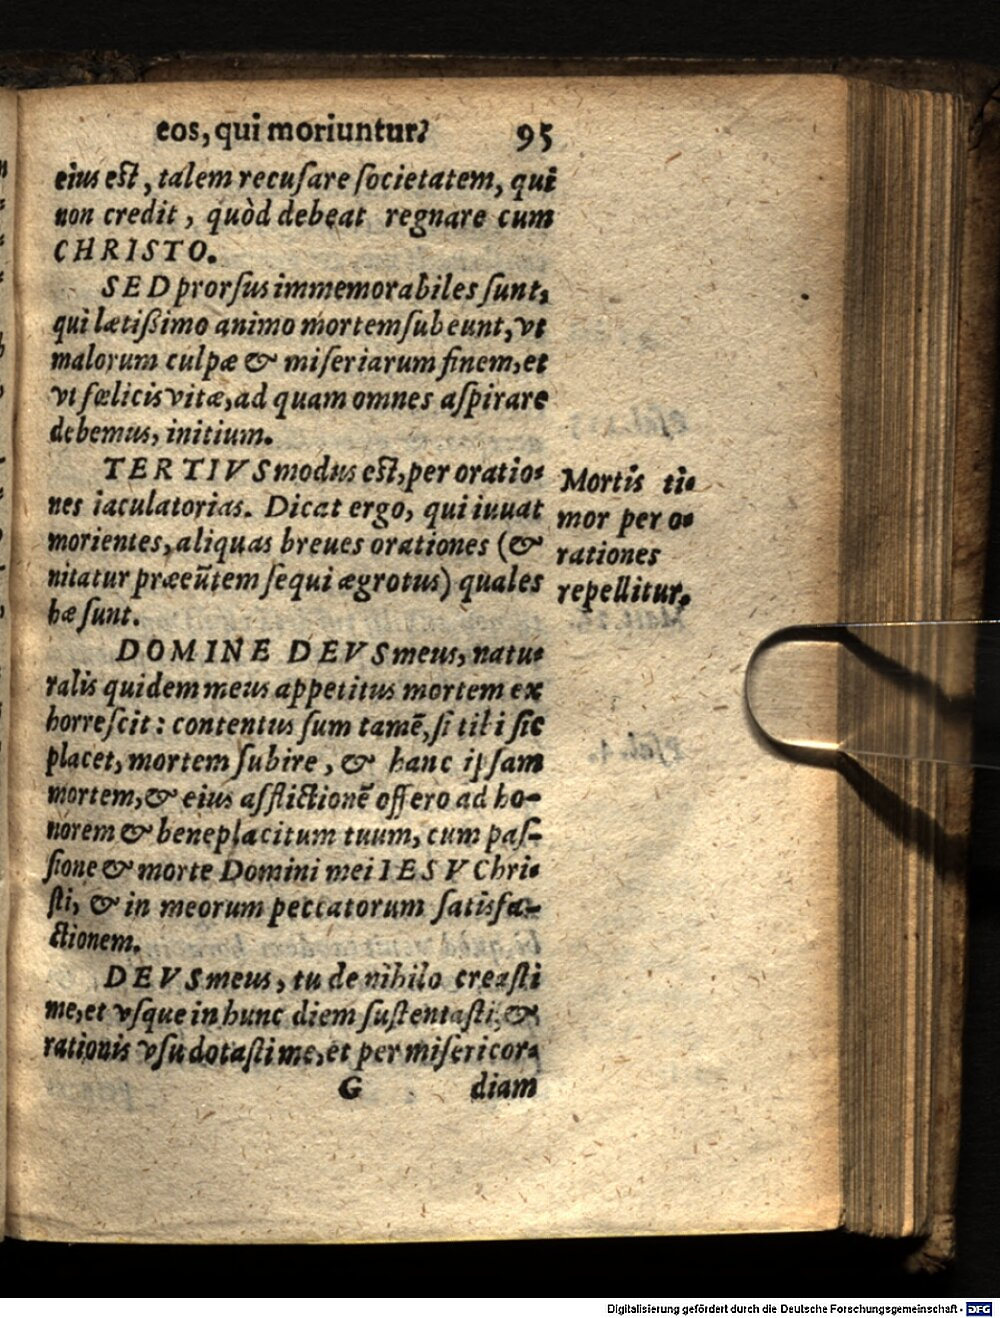 eos, qui moriuntur? 95
eius est, talem recusare societatem, qui
non credit, quòd debeat regnare cum
CHRISTO.
SED prorsus immemorabiles sunt,
qui lætißimo animo mortem subeunt, vt
malorum culpæ & miseriarum finem, et
vt fœlicis vitæ, ad quam omnes aspirare
debemus, initium.
TERTIVS modus est, per oratio-
nes iaculatorias. Dicat ergo, qui iuuat
morientes, aliquas breues orationes (&
nitatur præeũtem sequi ægrotus) quales
hæ sunt.
Mortis ti-
mor per o-
rationes
repellitur.
DOMINE DEVS meus, natu-
ralis quidem meus appetitus mortem ex
horrescit: contentus sum tamē, si tibi sic
placet, mortem subire, & hanc ipsam
mortem, & eius afflictionē offero ad ho-
norem & beneplacitum tuum, cum pas-
sione & morte Domini mei IESV Chri-
sti, & in meorum peccatorum satisfa-
ctionem.
DEVS meus, tu de nihilo creasti
me, et vsque in hunc diem sustentasti, &
rationis vsu dotasti me, et per misericor-
G diam
Digitalisierung gefördert durch die Deutsche Forschungsgemeinschaft - DFG